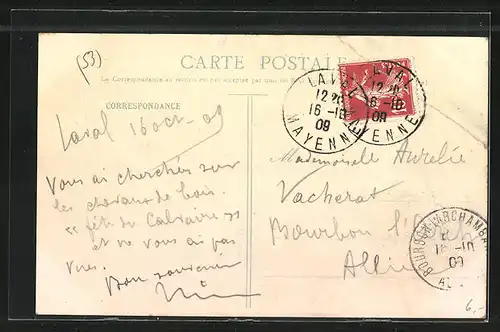 (53)
CARTE POSTALE
La Correspondance au recto n'est pas acceptée par tous
CORRESPONDANCE
Laval 16 oct - 09
Vous ai cherchés sur
les chevaux de bois
"fête du Calvaire"
et ne vous ai pas
vues.
Bon souvenir
LAVAL
12 20
16 -10
09
MAYENNE
LAVAL
12 20
16 -10
09
MAYENNE
Mademoiselle Aurélie
Vacherat
Bourbon l'Arch
Allier
BOURBON-L'ARCHAMBA
10
09
AL
6,-